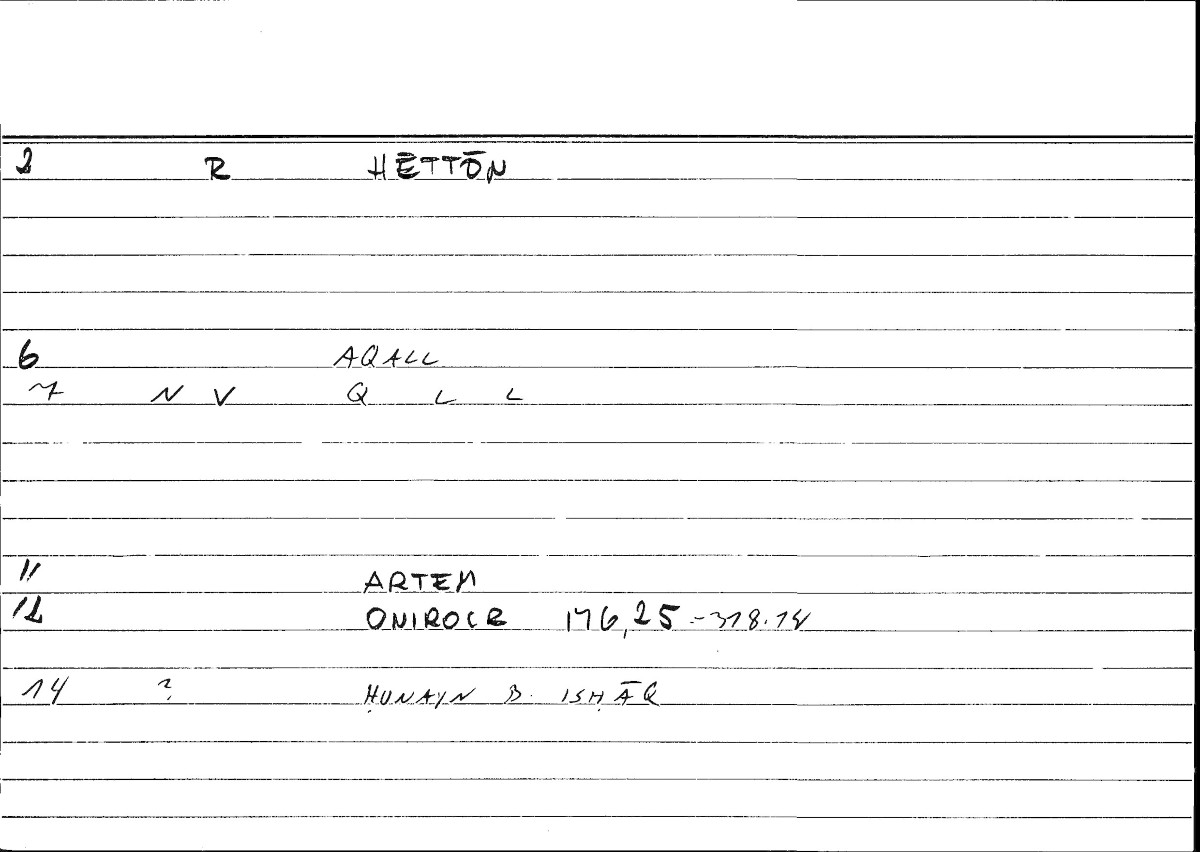 2 R HĒTTŌN
6 AQALL
7 N V Q L L
11 ARTEM
12 ONIROCR 176,25 - 318.18
14 ? ḤUNAYN B. ISḤĀQ